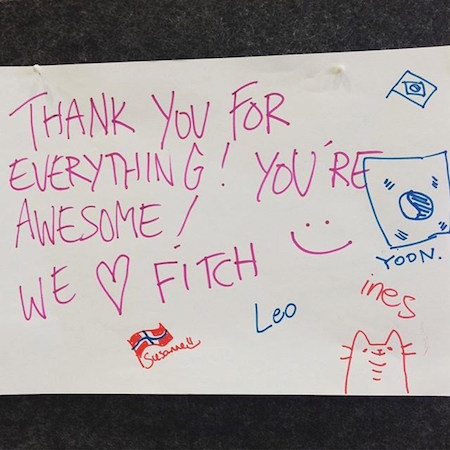 THANK YOU FOR
EVERYTHING! YOU'RE
AWESOME!
WE ♡ FITCH
YOON.
ines
Leo
Susanne